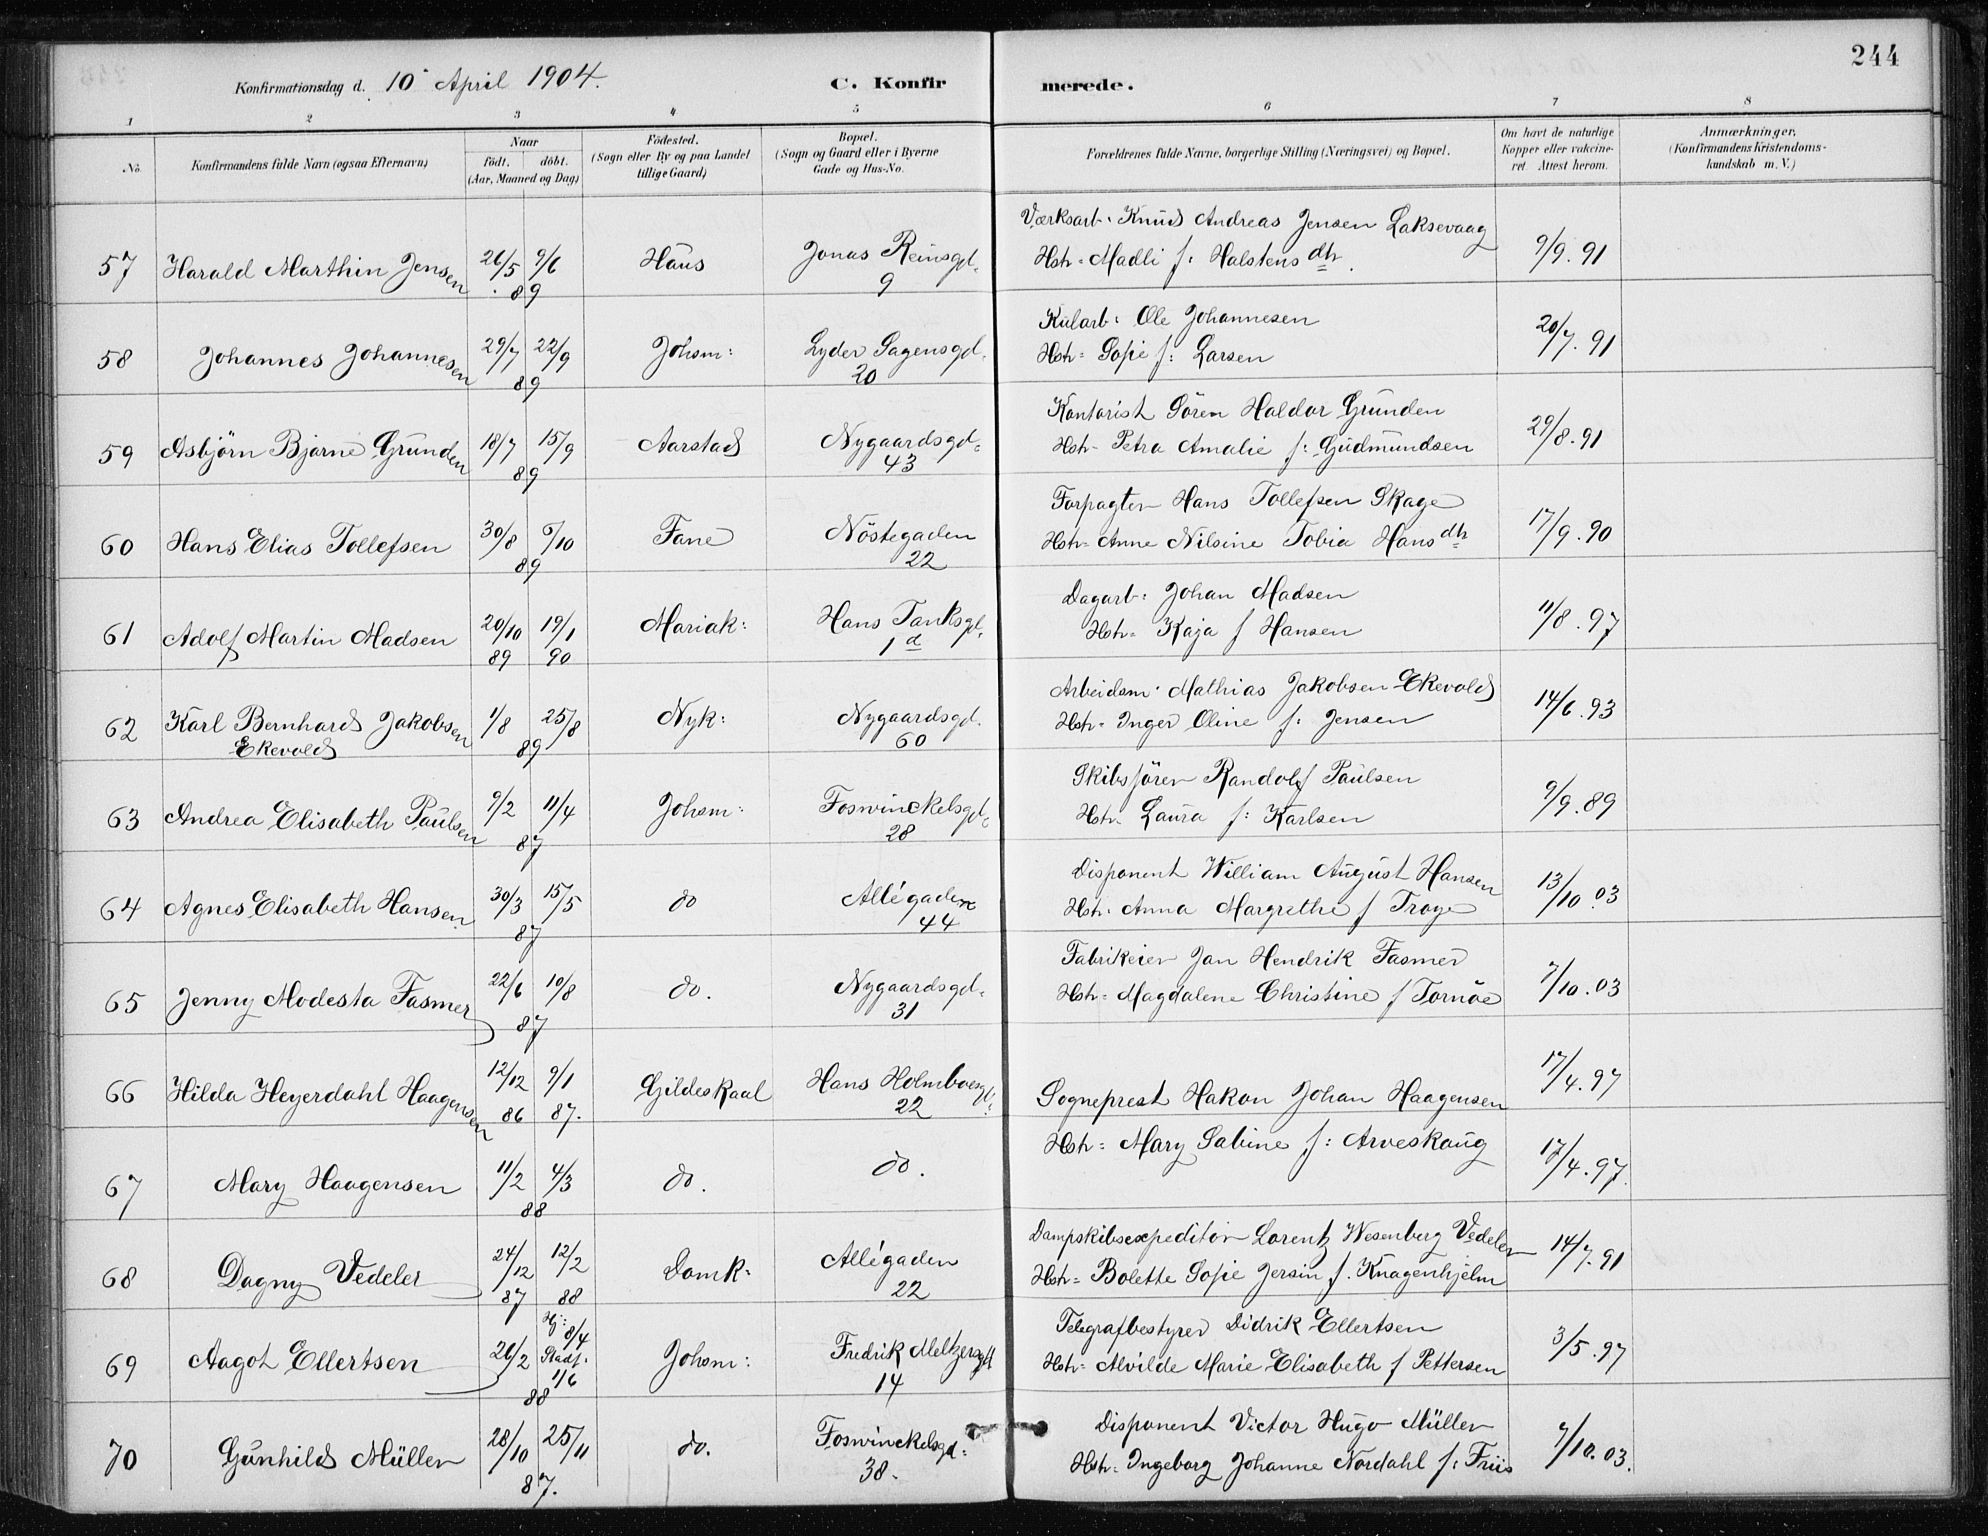 244
Konfirmationsdag d. 10 April 1904.
C. Konfirmerede.
1 2 3 4 5 6 7 8
No.
Konfirmandens fulde Navn (ogsaa Efternavn)
Naar
født. døbt.
(Aar, Maaned og Dag)
Fødested.
(Sogn eller By og paa Landet
tillige Gaard)
Bopæl.
(Sogn og Gaard eller i Byerne
Gade og Hus-No.
Forældrenes fulde Navne, borgerlige Stilling (Næringsvei) og Bopæl.
Om havt de naturlige
Kopper eller vakcine-
ret. Attest herom.
Anmærkninger.
(Konfirmandens Kristendoms-
kundskab m. V.)
57 Harald Marthin Jensen 26/5 9/6 89 Haus Jonas Reinsgd. 9
Værksarb. Knud Andreas Jensen Laksevaag
Hstr. Madli f: Halstensdtr. 9/9.91
58 Johannes Johannesen 29/7 22/9 89 Johsm: Lyder Sagensgd. 20
Kularb: Ole Johannesen
Hstr. Sofie f: Larsen 20/7.91
59 Asbjörn Bjarne Grunden 18/7 15/9 89 Aarstad Nygaardsgd. 43
Kontorist Sören Haldor Grunden
Hstr. Petra Amalie f: Gudmundsen 29/8.91
60 Hans Elias Tollefsen 30/8 6/10 89 Fane Nöstegaden 22
Forpagter Hans Tollefsen Skage
Hstr. Anne Nilsine Tobia Hansdtr 17/9.90
61 Adolf Martin Madsen 20/10 89 19/1 90 Mariak: Hans Tanksgd. 1 d
Dagarb: Johan Madsen
Hstr. Kaja f Hansen 11/8.97
62 Karl Bernhard Jakobsen Ekevold 1/8 25/8 89 Nyk: Nygaardsgd. 60
Arbeidsm. Mathias Jakobsen Ekevold
Hstr. Inger Oline f: Jensen 14/6.93
63 Andrea Elisabeth Paulsen 9/2 11/4 87 Johsm: Foswinckelsgd. 28
Skibsförer Randolf Paulsen
Hstr. Laura f: Karlsen 9/9.89
64 Agnes Elisabeth Hansen 30/3 15/5 87 do Allégaden 44
Disponent William August Hansen
Hstr. Anna Margrethe f Troye 13/10.03
65 Jenny Modesta Fasmer 22/6 10/8 87 do. Nygaardsgd. 31
Fabrikeier Jan Hendrik Fasmer
Hstr. Magdalene Christine f Tornöe 7/10.03
66 Hilda Heyerdahl Haagensen 12/12 86 9/1 87. Gildeskaal Hans Holmboegd. 22
Sogneprest Hakon Johan Haagensen 17/4.97
Hstr: Mary Sabine f: Arveskaug
67 Mary Haagensen 11/2 4/3 88 do. do. 17/4.97.
68 Dagny Vedeler 24/12 87 12/2 88 Domk: Allégaden 22
Dampskibsexpeditör Lorentz Wesenberg Vedeler
Hstr. Bolette Sofie Jersin f. Knagenhjelm 14/7.91
69 Aagot Ellertsen 26/2 Hj: 8/4 Stadf. 1/6 88 Johsm: Fredrik Meltzersgd 14
Telegrafbestyrer Didrik Ellertsen
Hstr. Alvilde Marie Elisabeth f Pettersen 3/5.97
70 Gunhild Müller 28/10 25/11 87. do. Foswinckelsgd. 38.
Disponent Victor Hugo Müller
Hstr. Ingeborg Johanne Nordahl f: Friis 7/10.03.